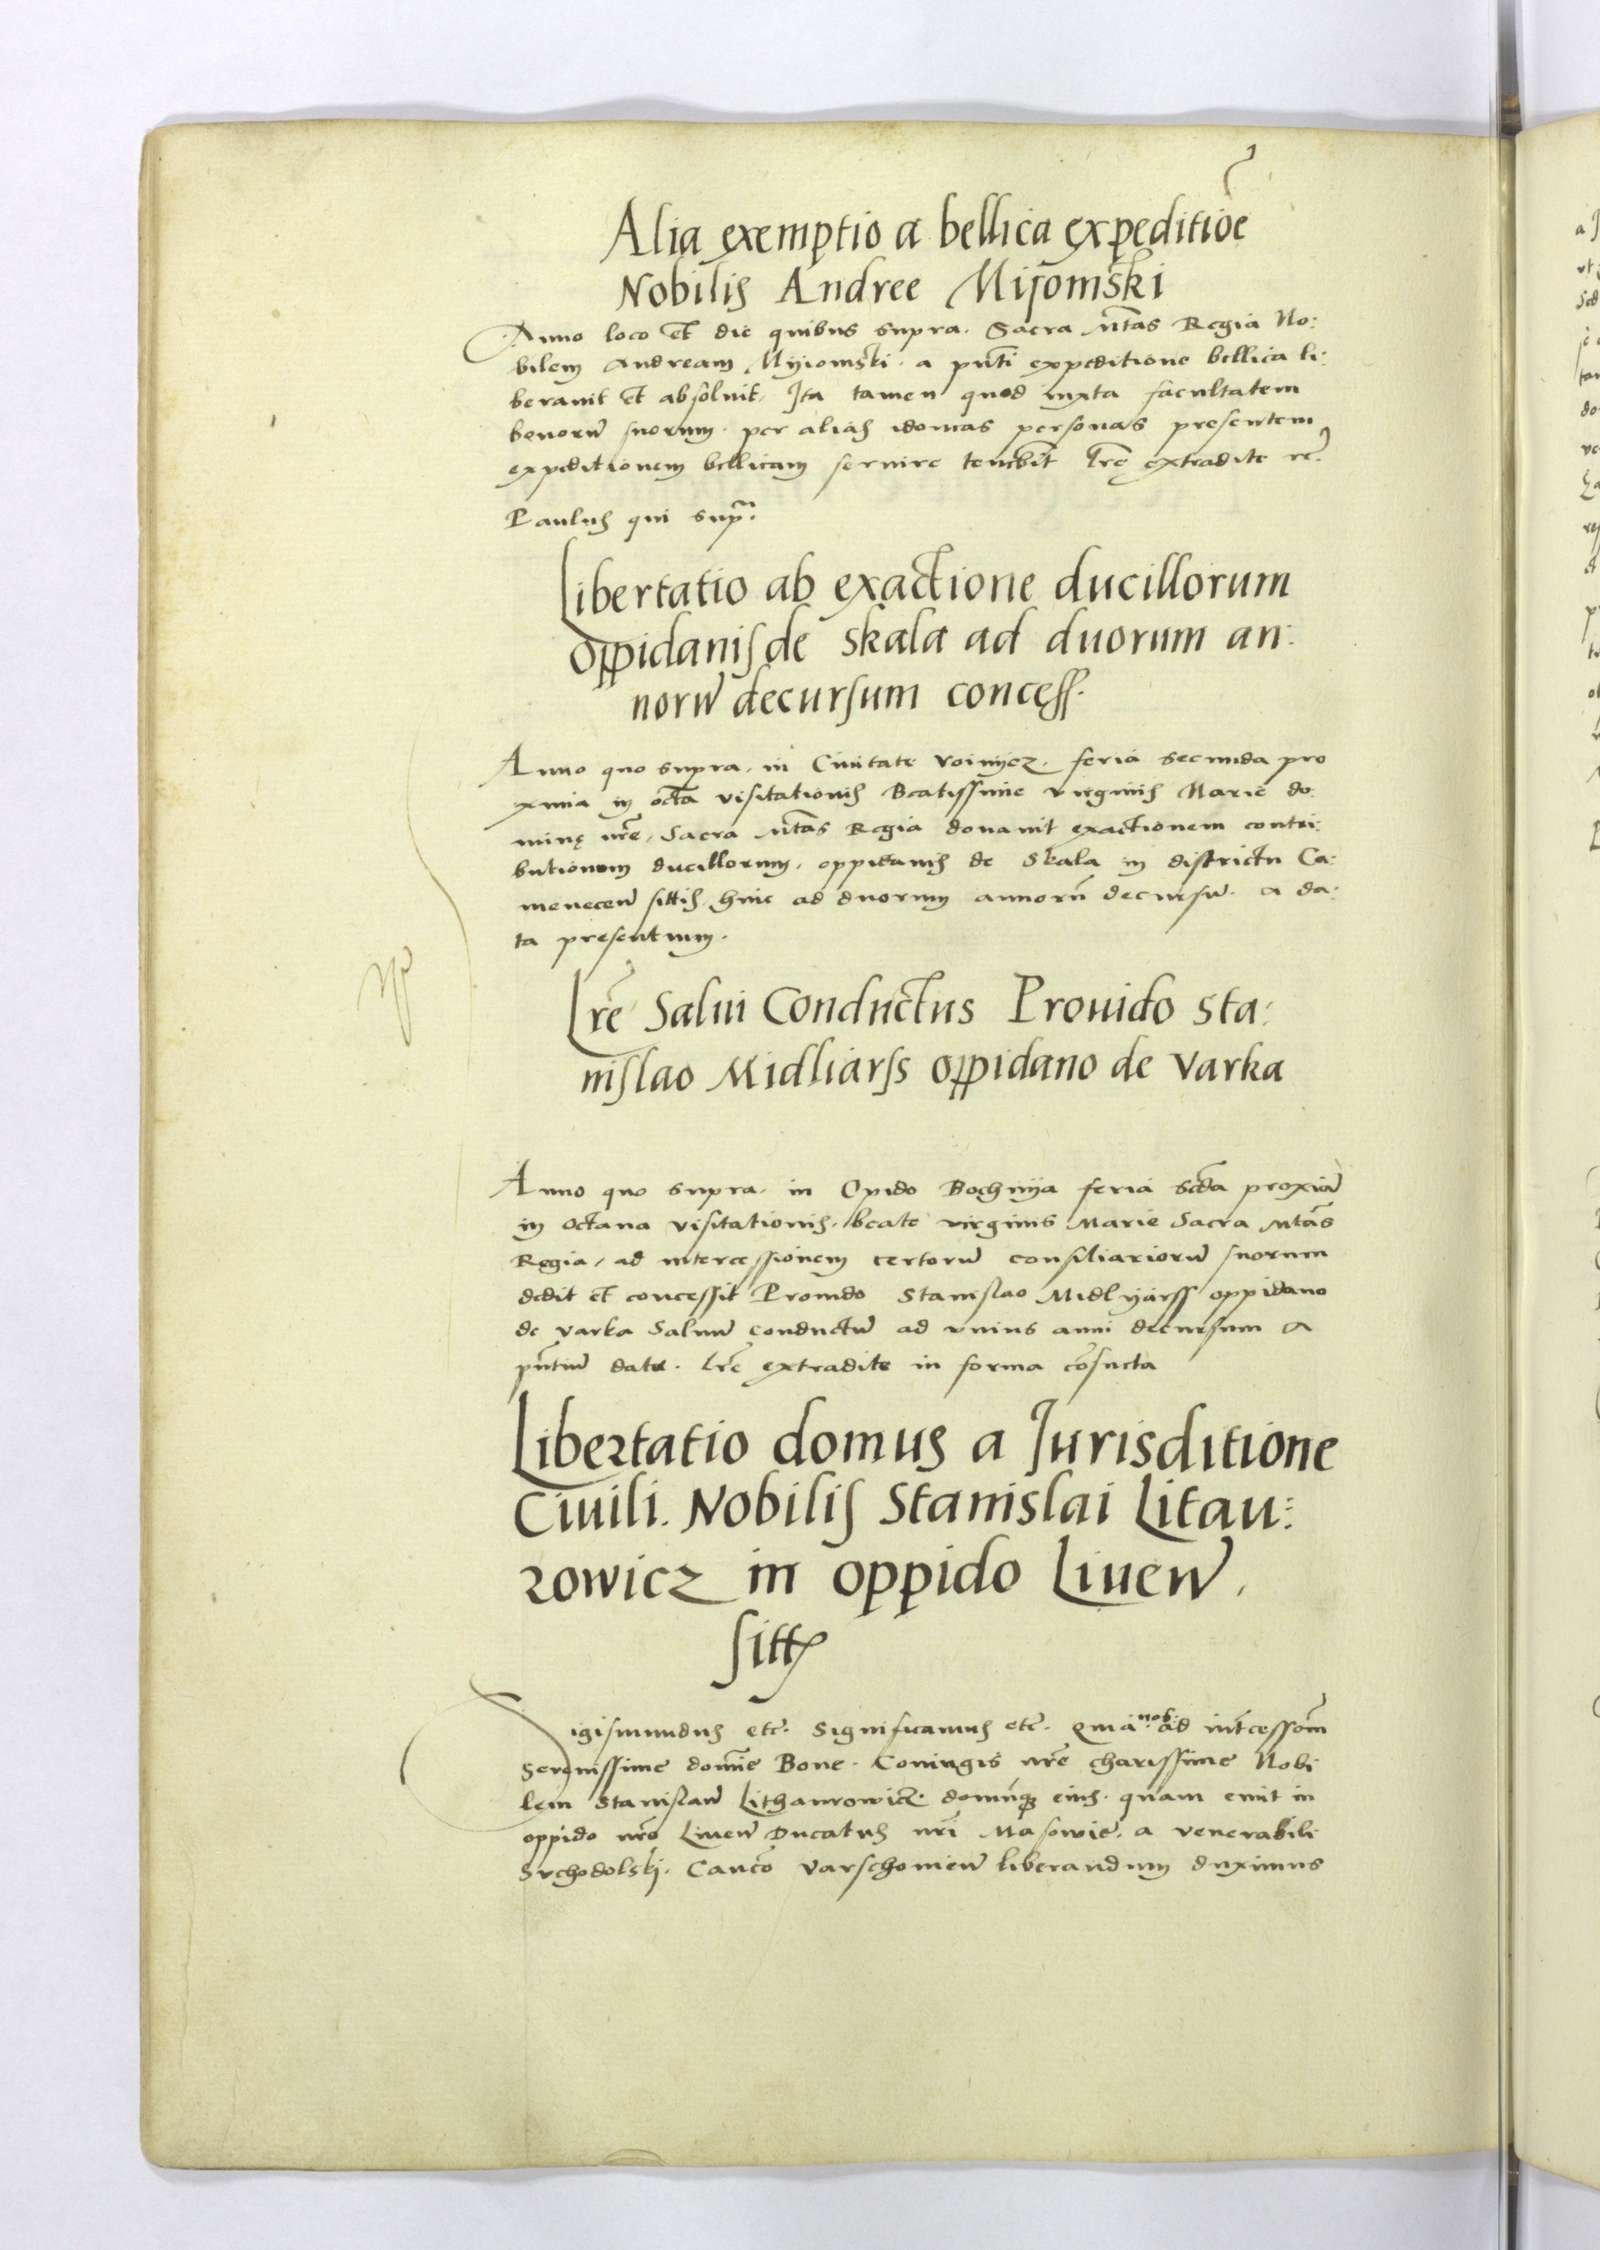 Alia exemptio a bellica expeditiōe
Nobilis Andree Mijomski
Anno loco et die quibus supra. Sacra Mtās Regia No:
bilem Andream Myiomski. a pn̄ti expeditione bellica li:
beravit et absolvit. Ita tamen quod iuxta facultatem
bonorū suorum. per alias idoneas personas presentem
expeditionem bellicam servire tenebit̄ Lrę̄ extradite rc̄.
Paulus qui supr̄a.
Libertatio ab exactione ducillorum
Oppidanis de Skala ad duorum an:
norū decursum concess.
Anno quo supra. in Civitate Voinijcz. feria secunda pro
xima in octā visitationis Beatissime virginis Marie do:
minę nr̄e. Sacra Mtās Regia donavit exactionem contri:
butionem ducillorum. oppidanis de Skala in districtu Ca:
menecen̄ sittis hinc ad duorum annorū decursū. a da:
ta presentium.
Lrē Salvi Conductus Provido Sta:
nislao Midliarss oppidano de Varka
Anno quo supra. in Opido Bochnija feria scd̄a proxiā
in octava visitationis. beate virginis Marie Sacra Mtās
Regia, ad intercessionem certorū consiliariorū suorum
dedit et concessit Provido Stanislao Midlyarss oppidano
de Varka Salvū conductū ad unius anni decursum a
pn̄tiū data. Lrē extradite in forma cōsueta
Libertatio domus a Jurisditione
Civili. Nobilis Stanislai Litau:
rowicz in oppido Liven̄.
sitt
Sigismundus etc̄. Significamus etc̄. Quia nob. ad int̄cessiōm
Serenissime domīe Bone. Coniugis nr̄e charissime Nobi
lem Stanislaū Lithaurowicz. domūq̨ eius. quam emit in
oppido nr̄o Liven̄ Ducatus nr̄i Masowie. a venerabili
Suchodolski. Canc̄o Varschovien̄ liberandum duximus